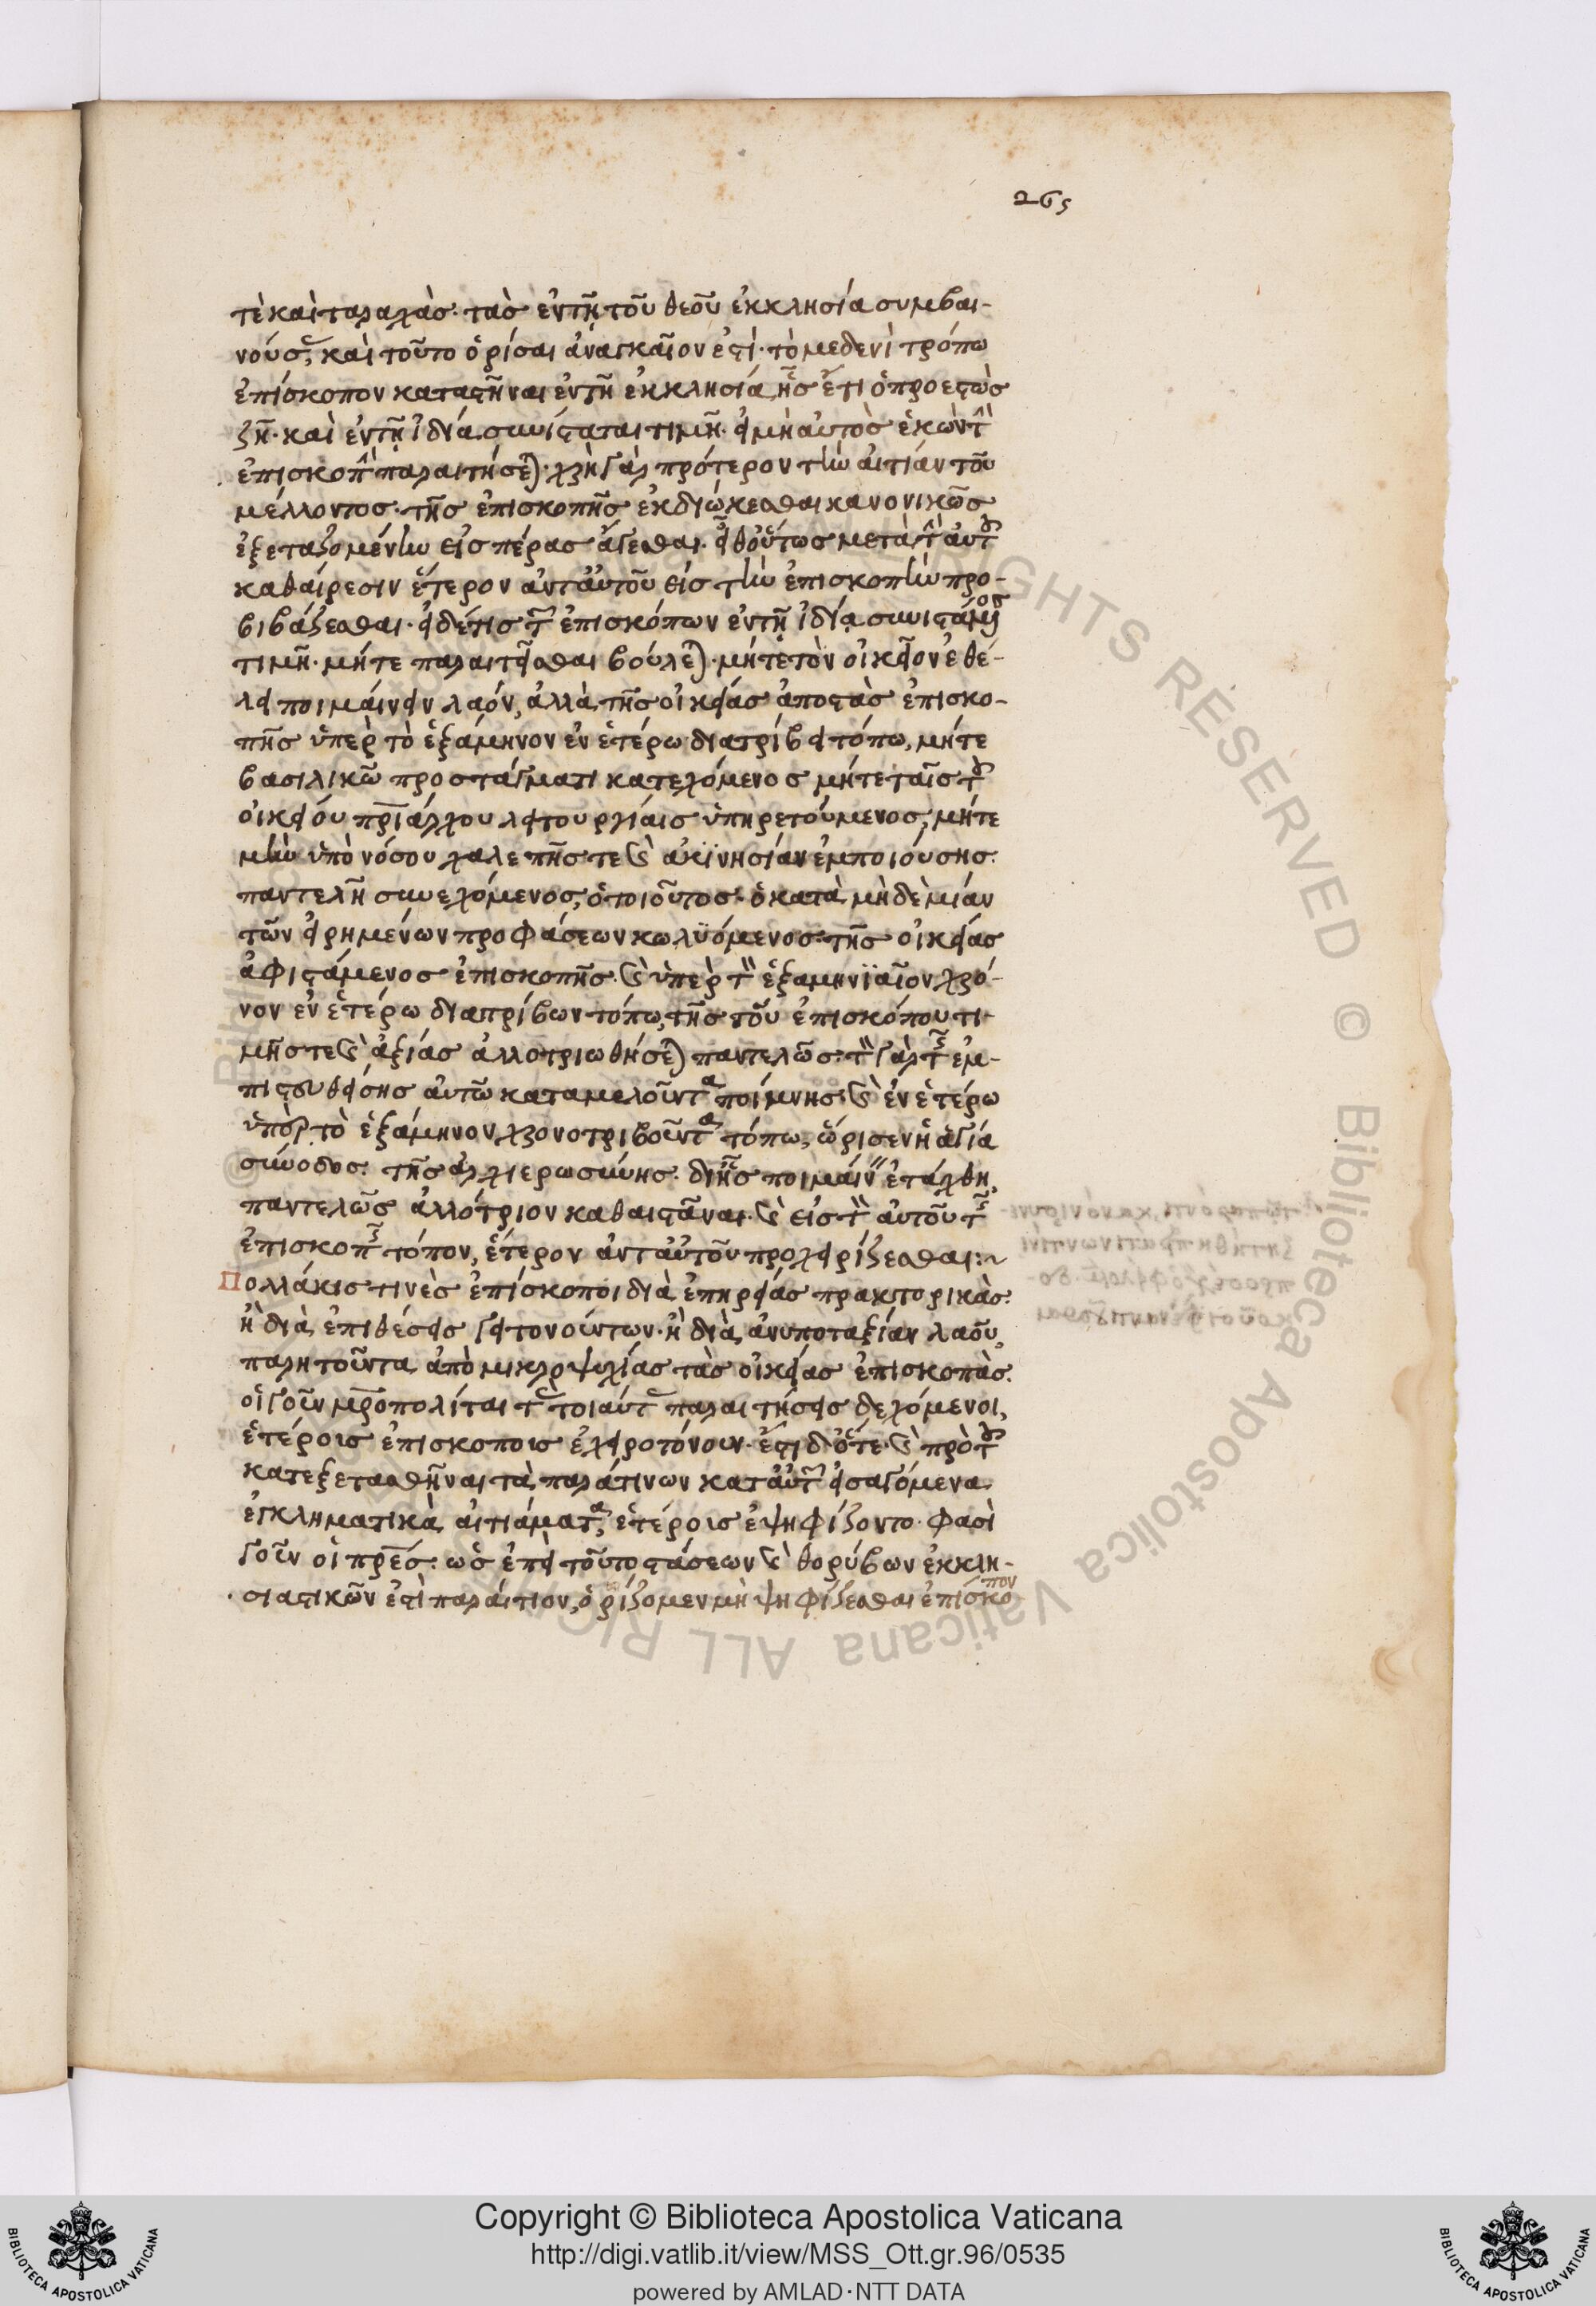 265
τὲ καὶ ταραχὰς· τὰς ἐν τῆ τοῦ θεοῦ ἐκκλησία συμβαι-
νούσ, καὶ τοῦτο ὁρίσαι ἀναγκαῖον ἐστί· τὸ μεδενὶ τρόπω
ἐπίσκοπον καταστῆναι ἐν τῆ ἐκκλησία, ἧς ἔτι ὁ προεστὼς
ζῆ· καὶ ἐν τῆ ἰδία συνίσταται τιμῆ· εἰ μὴ αὐτὸς ἑκὼν τὴν
ἐπισκοπὴν παραιτήσεται· χρὴ γὰρ πρότερον τὴν αἰτίαν τοῦ
μέλλοντος· τῆς ἐπισκοπῆς ἐκδιώκεσθαι κανονικῶς
ἐξεταζομένην εἰς πέρας ἄγεσθαι· εἶθ οὕτως μετὰ τὴν αὐτοῦ
καθαίρεσιν ἕτερον ἀντ αὐτοῦ εἰς τὴν ἐπισκοπὴν προ-
βιβάζεσθαι· εἰ δέ τις τῶν ἐπισκόπων ἐν τῆ ἰδία συνιστάμενος
τιμῆ· μήτε παραιτεῖσθαι βούλεται· μήτε τὸν οἰκεῖον ἐθέ-
λει ποιμαίνειν λαόν, ἀλλὰ τῆς οἰκείας ἀποστὰς ἐπισκο-
πῆς ὑπὲρ τὸ ἑξάμηνον ἐν ἑτέρω διατρίβει τόπω, μήτε
βασιλικῶ προστάγματι κατεχόμενος μήτε ταῖς τοῦ
οἰκείου πριάρχου λειτουργίαις ὑπηρετούμενος, μήτε
μὴν ὑπὸ νόσου χαλεπῆς τε καὶ ἀκϊνησίαν ἐμποιούσης·
παντελῆ συνεχόμενος, ὁ τοιοῦτος· ὁ κατὰ μὴδὲμίαν
τῶν εἰρημένων προφάσεων κωλϋόμενος τῆς οἰκείας
ἀφιστάμενος ἐπισκοπῆς· καὶ ὑπὲρ τὸν ἑξαμηνϊαῖον χρό-
νον ἐν ἑτέρω διατρίβων τόπω, τῆς τοῦ ἐπισκόπου τι-
μῆς τε καὶ ἀξίας ἀλλοτριωθήσεται παντελῶς· τὸν γὰρ τῆς ἐμ-
πιστευθείσης αὐτῶ καταμελοῦντα ποίμνης· καὶ ἐν ἑτέρω
ὑπὲρ τὸ ἑξάμηνον χρονοτριβοῦντα τόπω, ὥρισεν ἡ ἁγία
σύνοδος· τῆς ἀρχιερωσύνης· δι ἧς ποιμαίνειν ἐτάχθη,
παντελῶς ἀλλότριον καθαιστᾶναι· καὶ εἰς τὸν αὐτοῦ τῆς
ἐπισκοπῆς τόπον, ἕτερον ἀντ αὐτοῦ προχειρίζεσθαι:~
Πολλάκις τινὲς ἐπίσκοποι διὰ ἐπηρείας πρακτορικὰς·
ἢ διὰ ἐπιθέσεις γειτονούντων· ἢ διὰ ἀνυποταξίαν λαοῦ,
παρητοῦντο ἀπὸ μικροψυχίας τὰς οἰκείας ἐπισκοπὰς·
οἱ γοῦν μροπολίται τὰς τοιαύτας παραιτήσεις δεχόμενοι,
ἑτέροις ἐπισκοποις ἐχειροτόνουν· ἔστι δ ὅτε· καὶ πρὸ τοῦ
κατεξετασθῆναι τὰ παρά τινων κατ αὐτῶν εἰσαγόμενα
ἐγκληματικὰ αἰτιάματα, ἑτέροις ἐψηφίζοντο· φασὶ
γοῦν οἱ πρες· ὡς ἐπεὶ τοῦτο στάσεων καὶ θορύβων ἐκκλη-
σιαστικῶν ἐστὶ παραίτιον, ὁρίζομεν μὴ ψηφίζεσθαι ἐπίσκοπον
Copyright © Biblioteca Apostolica Vaticana
http://digi.vatlib.it/view/MSS_Ott.gr.96/0535
powered by AMLAD·NTT DATA
BIBLIOTECA APOSTOLICA VATICANA
BIBLIOTECA APOSTOLICA VATICANA
© Biblioteca Apostolica Vaticana ALL RIGHTS RESERVED